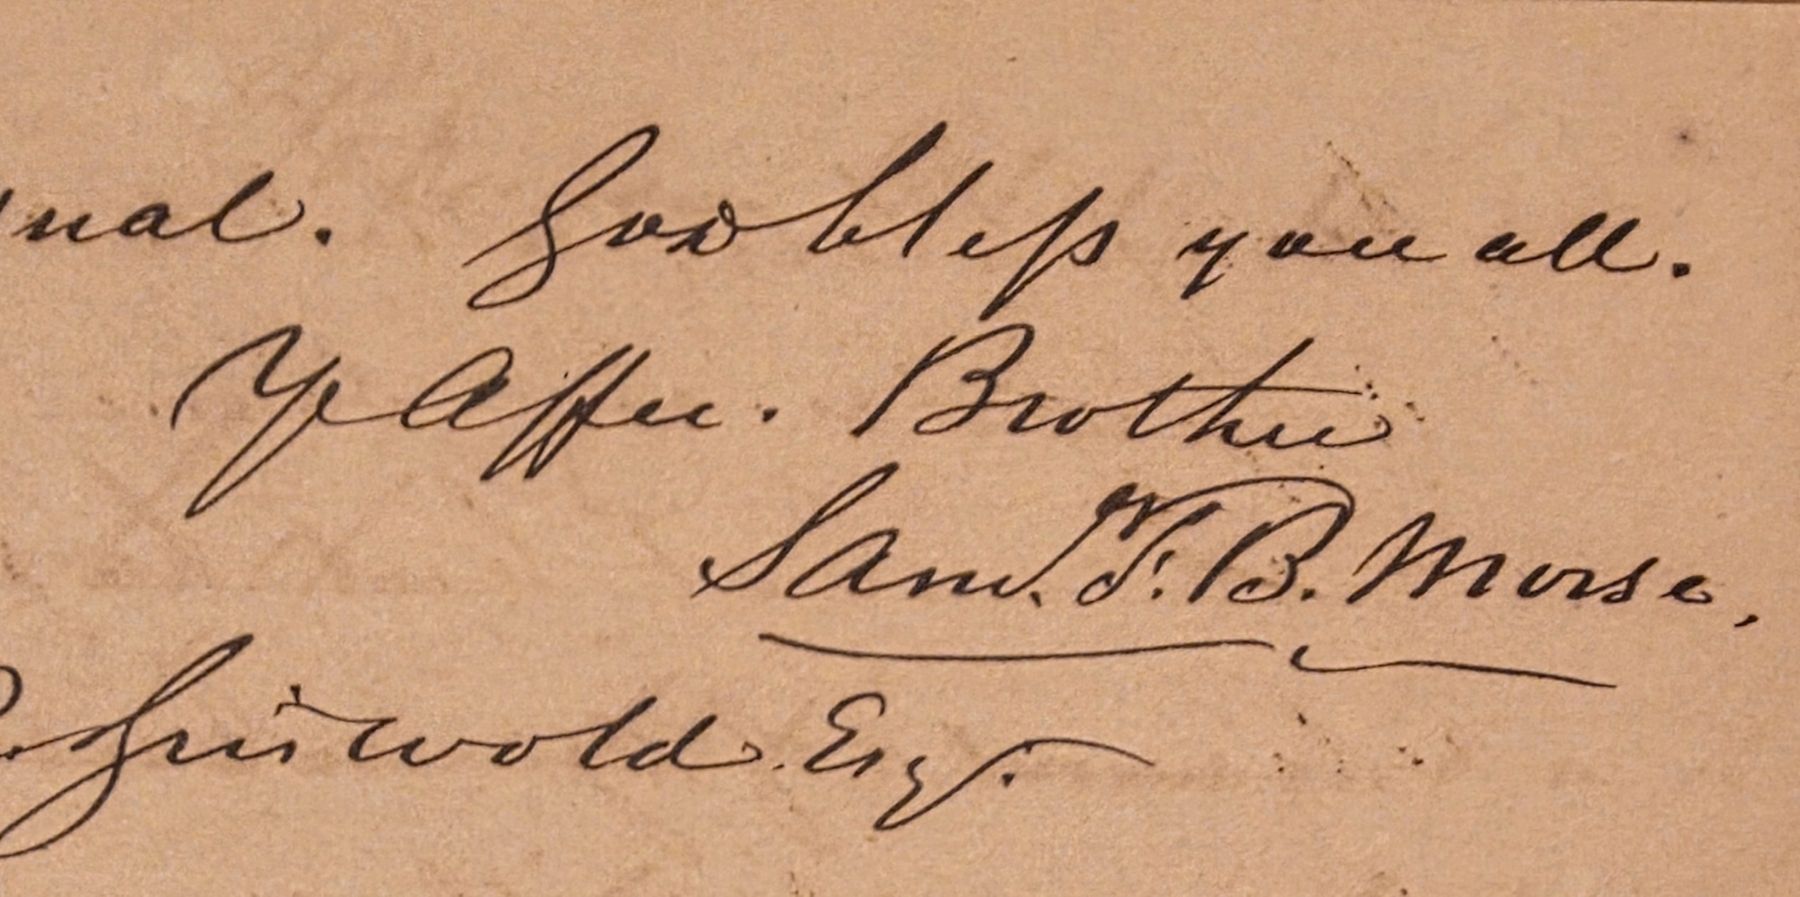 nal. God bless you all.
Yr Affec. Brother
Saml. F. B. Morse.
Griswold Esq.